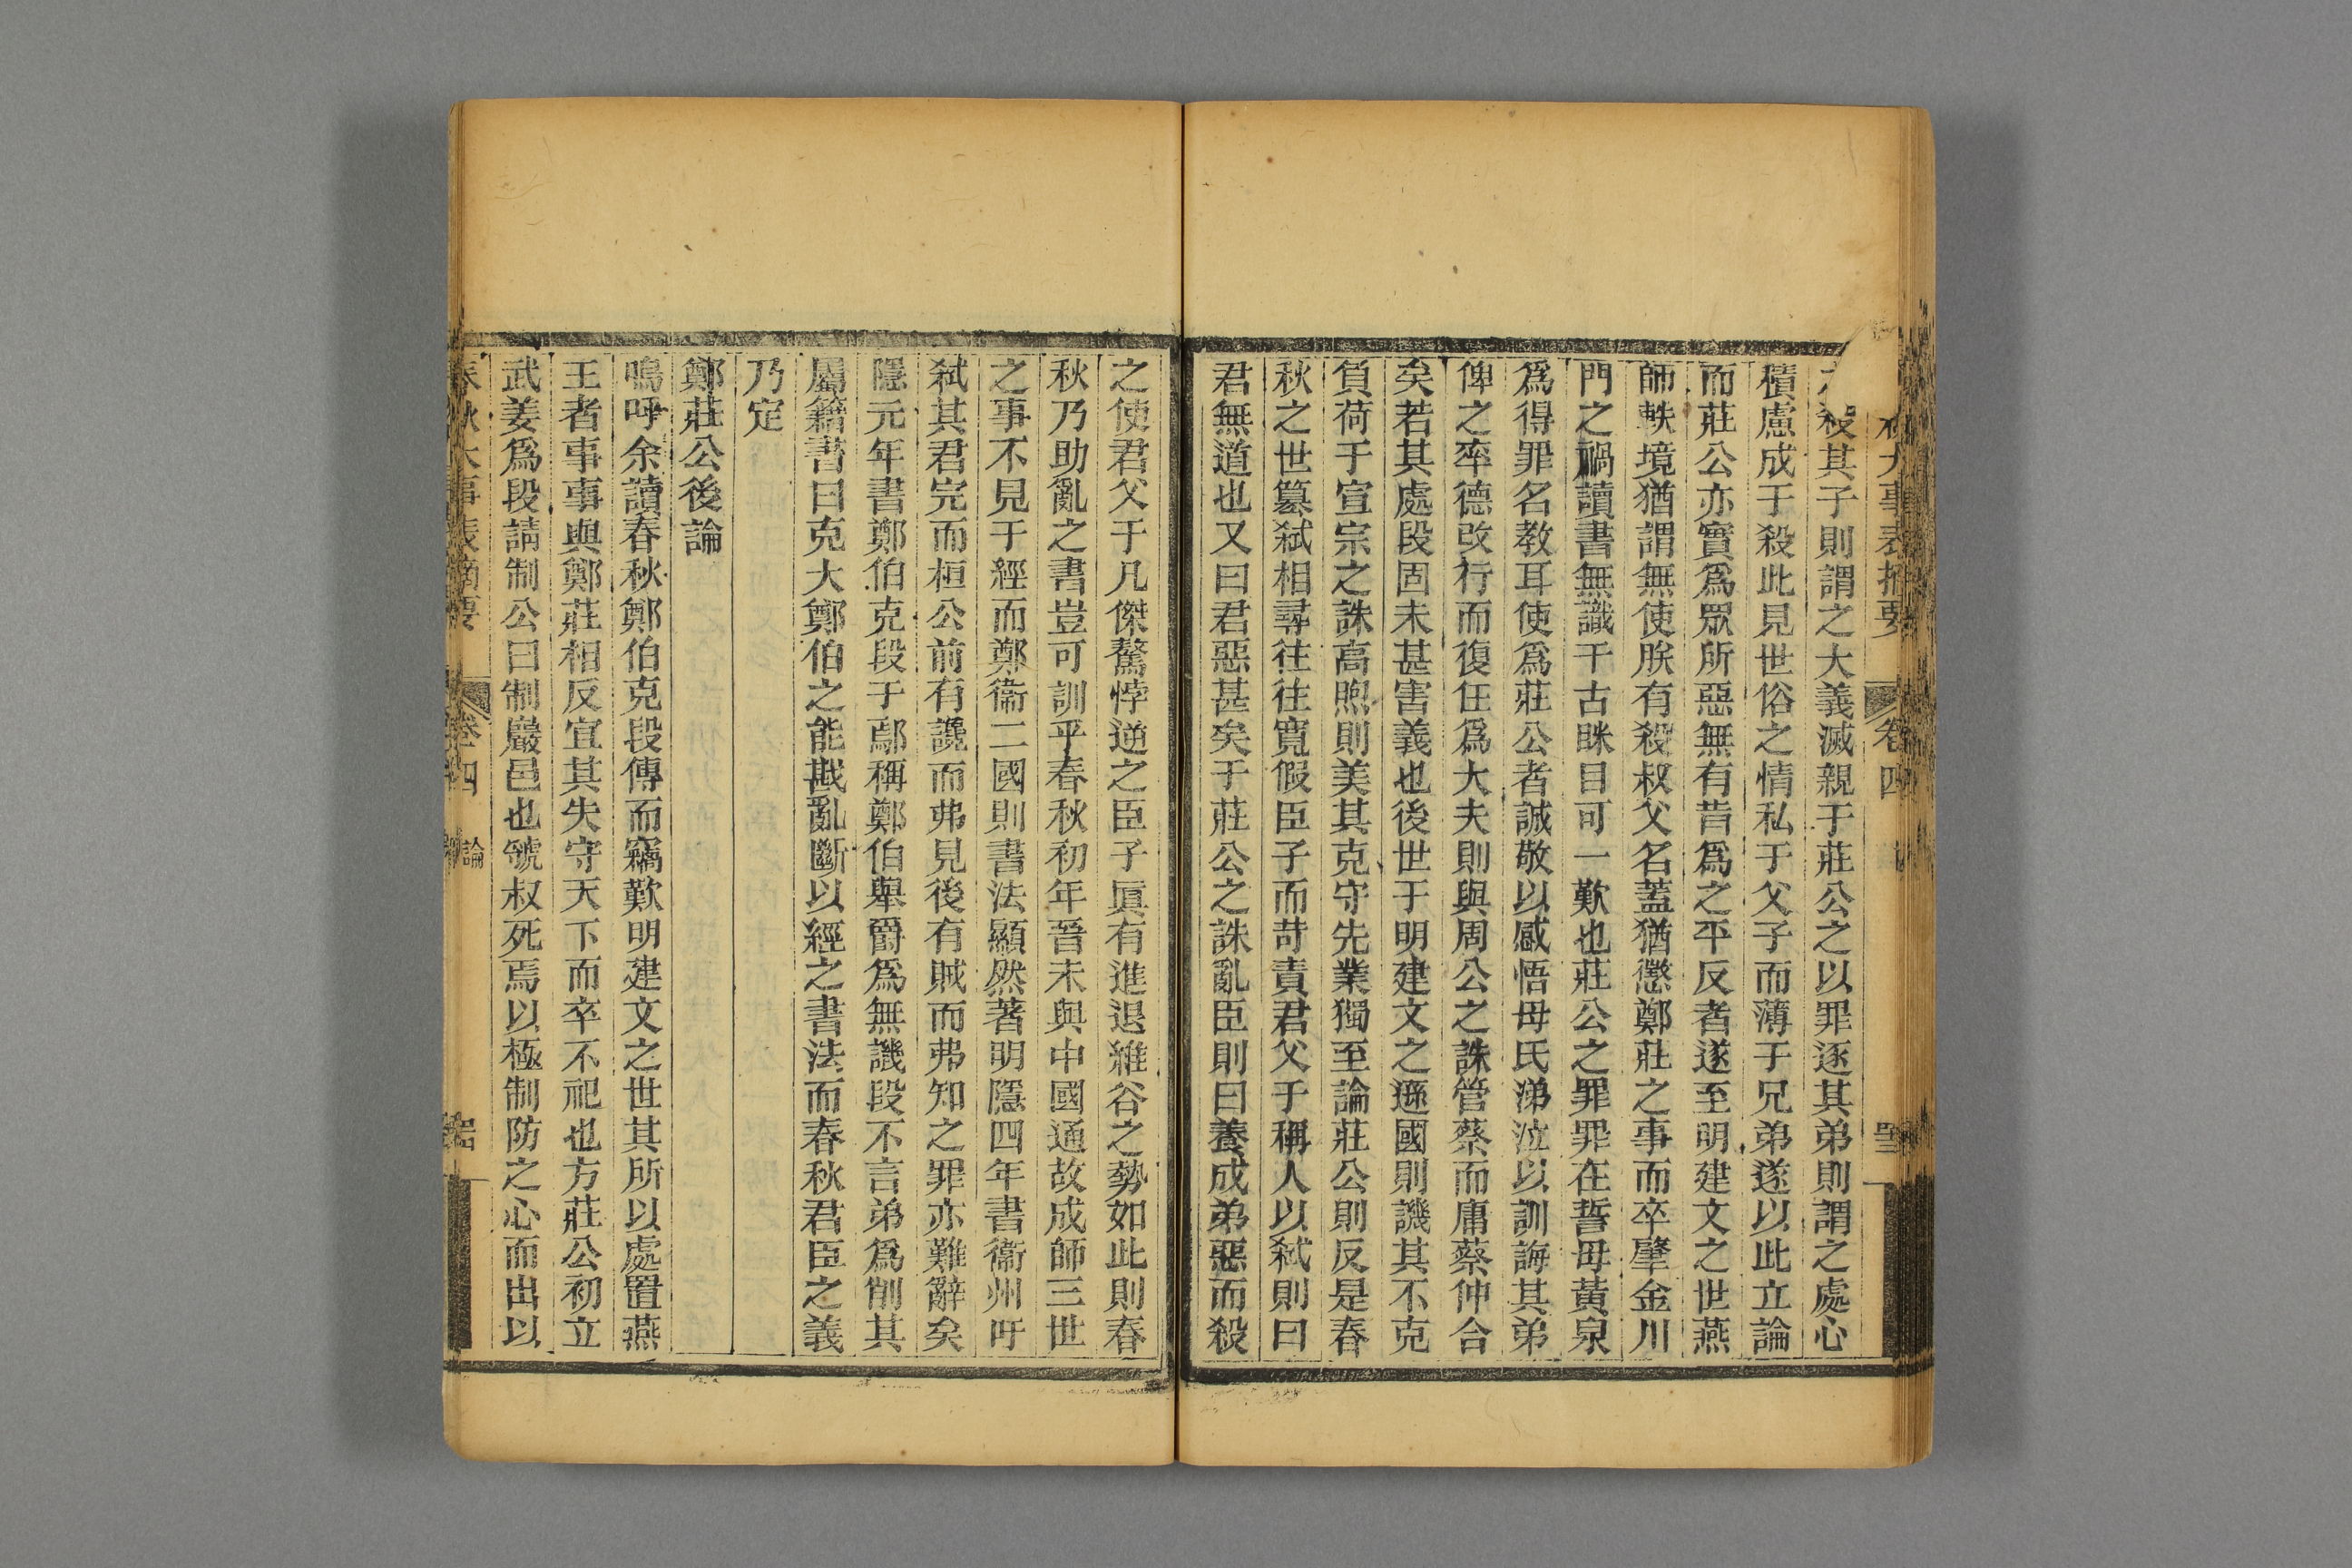 殺其子則謂之大義滅親于莊公之以罪逐其弟則謂之處心
積慮成于殺此見世俗之情私于父子而薄于兄弟遂以此立論
而莊公亦實爲眾所惡無有昔爲之平反者遂至明建文之世燕
師軼境猶謂無使朕有殺叔父名蓋猶懲鄭莊之事而卒肇金川
門之禍讀書無識千古眯目可一歎也莊公之罪罪在誓母黃泉
爲得罪名教耳使爲莊公者誠敬以感悟母氏涕泣以訓誨其弟
俾之率德改行而復任爲大夫則與周公之誅管蔡而庸蔡仲合
矣若其處段固未甚害義也後世于明建文之遜國則譏其不克
負荷于宣宗之誅高煦則美其克守先業獨至論莊公則反是春
秋之世篡弑相尋往往寬假臣子而苛責君父于稱人以弑則曰
君無道也又曰君惡甚矣于莊公之誅亂臣則曰養成弟惡而殺
之使君父于凡傑驁悖逆之臣子眞有進退維谷之勢如此則春
秋乃助亂之書豈可訓乎春秋初年晉未與中國通故成師三世
之事不見于經而鄭衞二國則書法顯然著明隱四年書衞州吁
弑其君完而桓公前有讒而弗見後有賊而弗知之罪亦難辭矣
隱元年書鄭伯克段于鄢稱鄭伯舉爵爲無譏段不言弟爲削其
屬籍書曰克大鄭伯之能戡亂斷以經之書法而春秋君臣之義
乃定
鄭莊公後論
嗚呼余讀春秋鄭伯克段傳而竊歎明建文之世其所以處置燕
王者事事與鄭莊相反宜其失守天下而卒不祀也方莊公初立
武姜爲段請制公曰制巖邑也虢叔死焉以極制防之心而出以
春秋大事表摘要 卷四 論